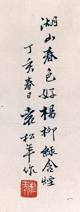 湖山春色好楊柳綠含煙
丁亥春日袁松年作